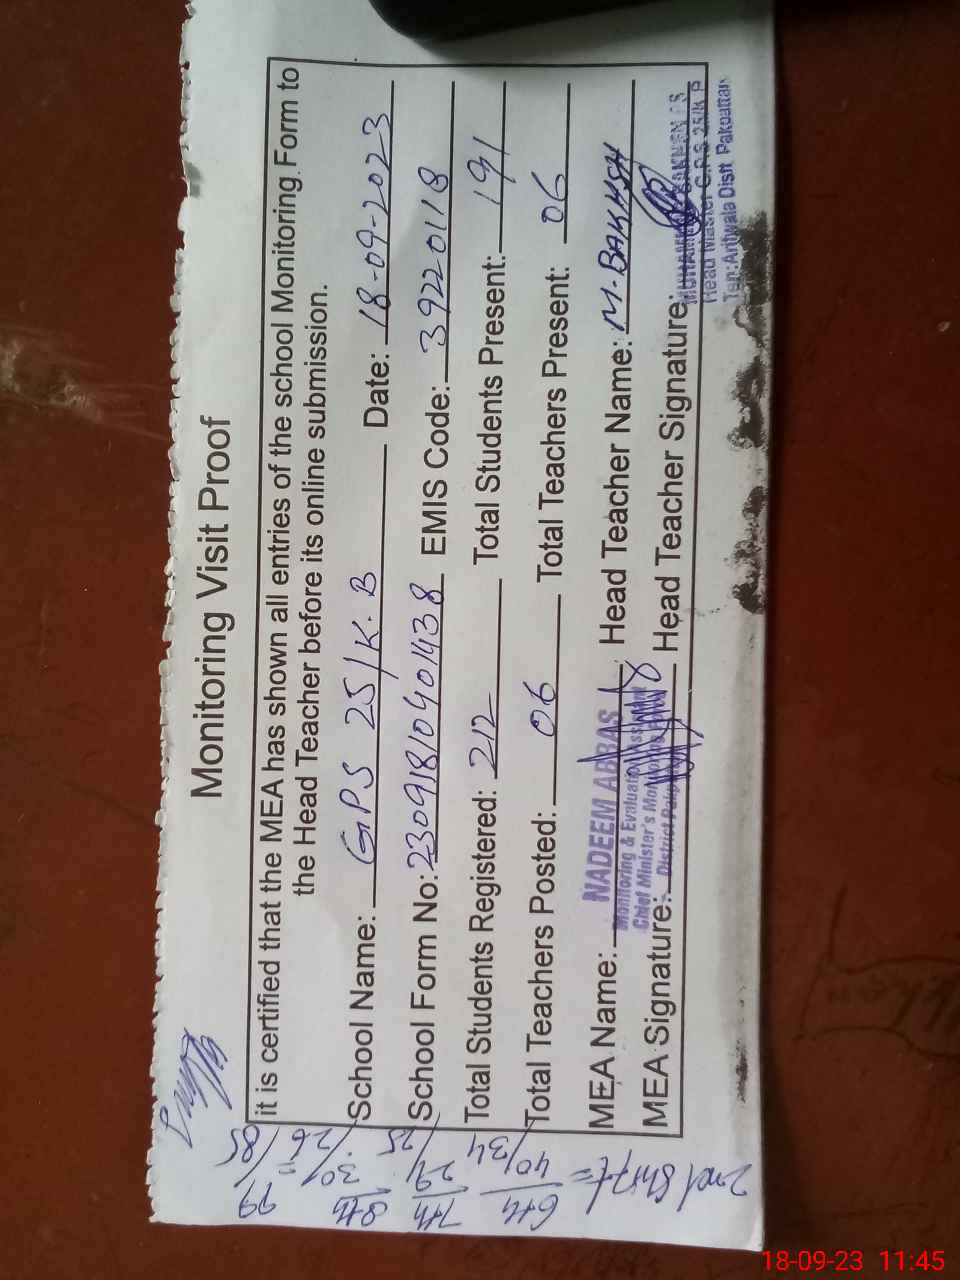 Monitoring Visit Proof
it is certified that the MEA has shown all entries of the school Monitoring Form to
the Head Teacher before its online submission.
School Name: GPS 25/K.B Date: 18-09-2023
School Form No: 23091810401438 EMIS Code: 39220118
Total Students Registered: 212 Total Students Present: 191
Total Teachers Posted: 06 Total Teachers Present: 06
MEA Name: NADEEM ABBAS Head Teacher Name: M. BAKHSH
Monitoring & Evaluation
Chief Minister's
District
MEA Signature: Head Teacher Signature:
Head Master G.P.S 25/K
Teh: Arifwala Distt Pakpattan
2nd Shift =
6th 40/34
7th 29/25
8th 30/26
99/85
18-09-23 11:45